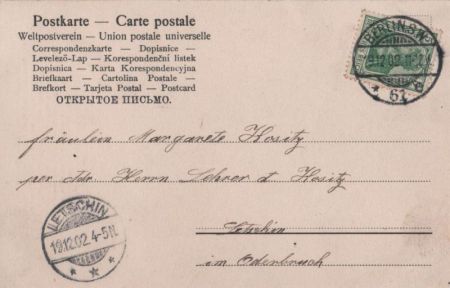 Postkarte — Carte postale
Weltpostverein — Union postale universelle
Correspondenzkarte — Dopisnice —
Levelező-Lap — Korespondenční lístek
Dopisnica — Karta Korespondencyjna
Briefkaart — Cartolina Postale —
Brefkort — Tarjeta Postal — Postcard
ОТКРЫТОЕ ПИСЬМО.
BERLIN
12.02
61
Fräulein Margarete Kositz
per Adr Herrn Lehrer
Kositz
LETSCHIN
19.12.02 4-5N.
Letschin
im Oderbruch